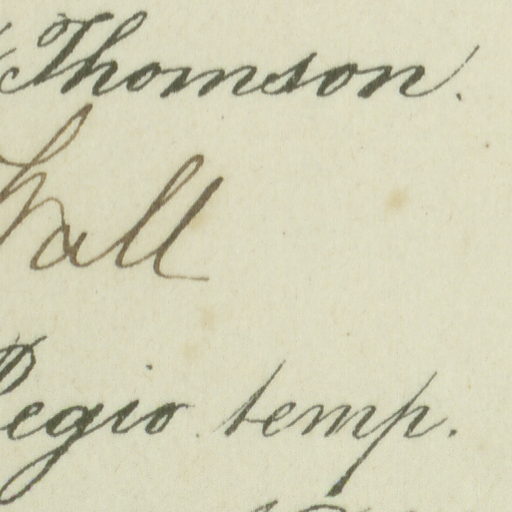 Thomson.
Wall
Regio temp.